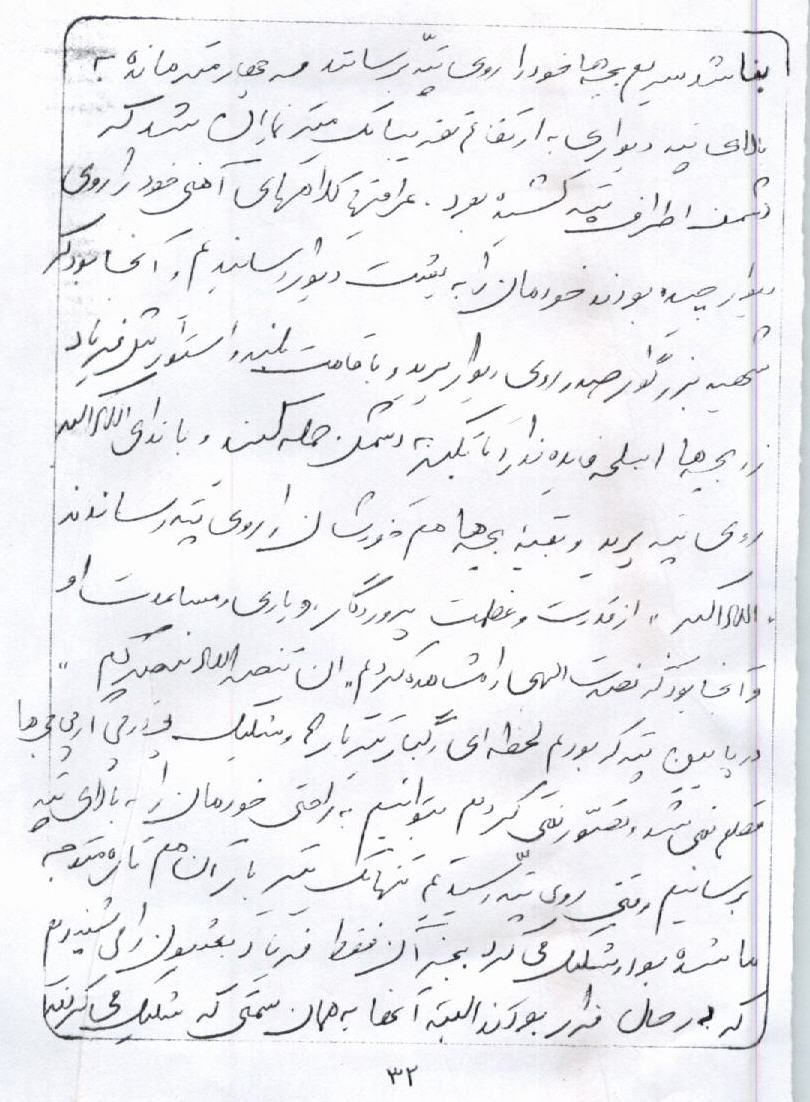 بنا شد سریع بچه‌ها خود را روی تپه برسانند سه چهار متر مانده به
بالای تپه دیواری به ارتفاع تقریبا یک متر نمایان شد که
دشمن اطراف تپه کشیده بود. عراقیها کلاههای آهنی خود را روی
دیوار چیده بودند خودمان را به پشت دیوار رساندیم و آنجا بود که
شهید بزرگوار صدر روی دیوار پرید و با قامت بلند و استوارش فریاد
زد بچه‌ها اسلحه فایده ندارد با تکبیر به دشمن حمله کنید و با ندای الله اکبر
روی تپه پرید و بقیه بچه‌ها هم خودشان را روی تپه رساندند
"الله اکبر" از قدرت و عظمت پروردگار و یاری و مساعدت او
و آنجا بود که نصرت الهی را مشاهده کردیم "ان تنصر الله ینصرکم"
در پایین تپه که بودیم لحظه‌ای رگبار تیربارها و شلیک آرپی‌جی‌ها
قطع نمی شد و تصور نمی کردیم بتوانیم به راحتی خودمان را به بالای تپه
برسانیم وقتی روی تپه رسیدیم تنها یک تیربار آن هم تازه متوجه
ما شده بود و شلیک می کرد بجز آن فقط فریاد بعثیون را می شنیدیم
که در حال فرار بودند البته آنها به همان سمتی که شلیک می کردند
۳۲